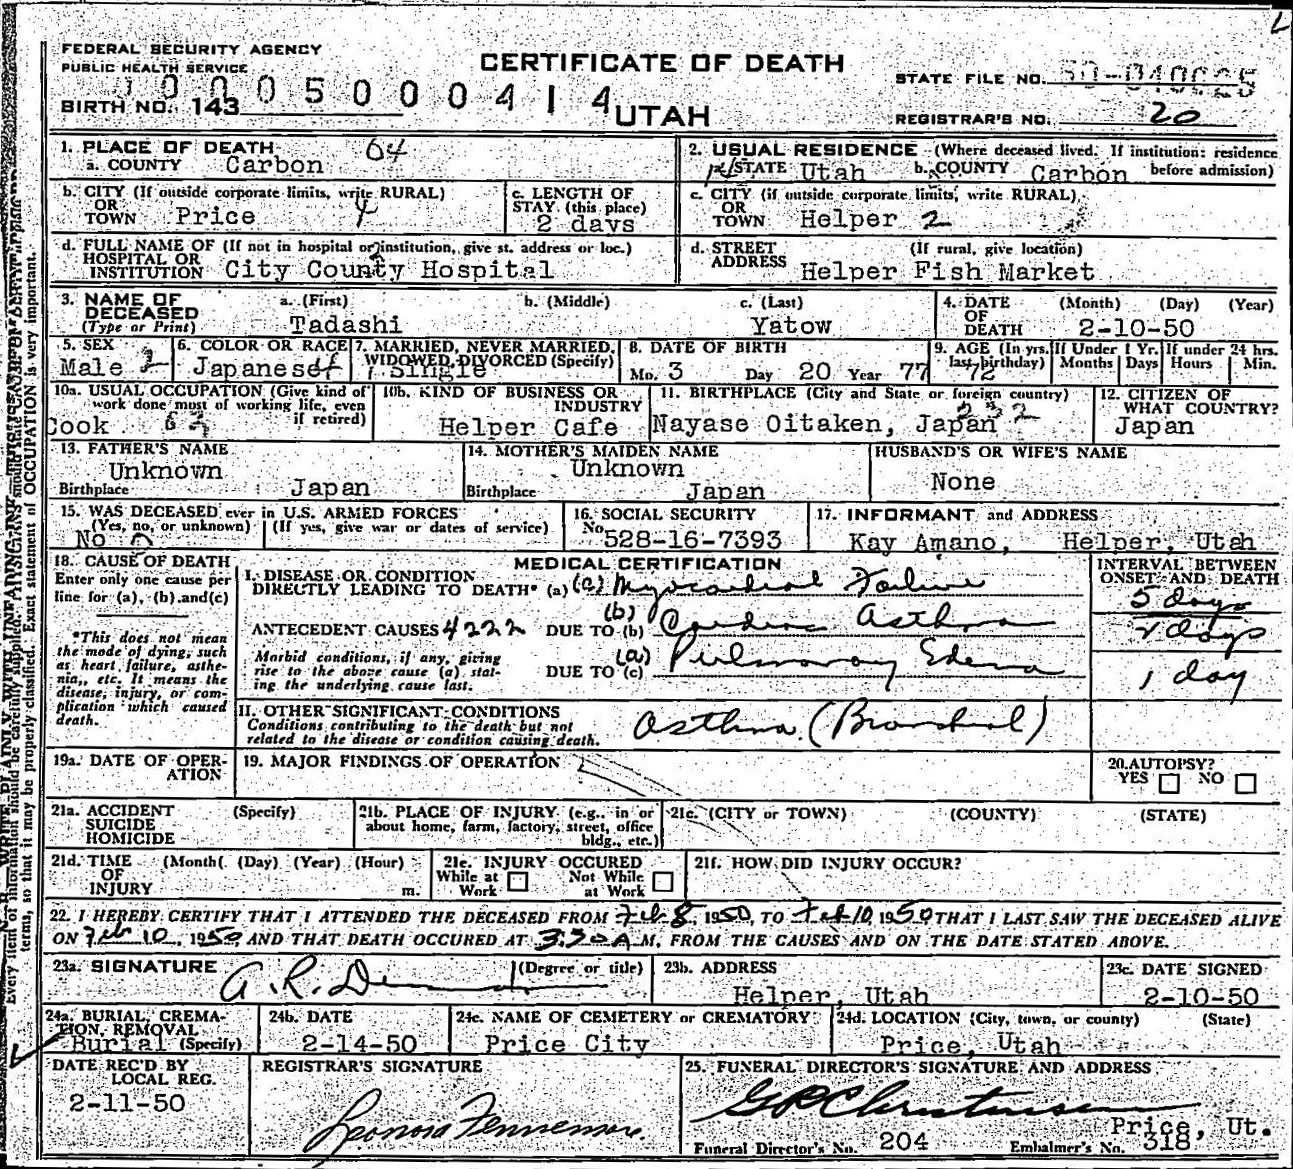 FEDERAL SECURITY AGENCY
PUBLIC HEALTH SERVICE
CERTIFICATE OF DEATH
STATE FILE NO.
BIRTH NO. 143
UTAH
REGISTRAR'S NO. 20
1. PLACE OF DEATH 64
a. COUNTY Carbon
2. USUAL RESIDENCE (Where deceased lived. If institution: residence before admission)
STATE Utah b. COUNTY Carbon
b. CITY (If outside corporate limits, write RURAL)
OR
TOWN Price 4
c. LENGTH OF
STAY (this place)
2 days
c. CITY (if outside corporate limits, write RURAL)
OR
TOWN Helper 2
d. FULL NAME OF (If not in hospital or institution, give st. address or loc.)
HOSPITAL OR
INSTITUTION City County Hospital
d. STREET (If rural, give location)
ADDRESS Helper Fish Market
3. NAME OF DECEASED (Type or Print)
a. (First) b. (Middle) c. (Last)
Tadashi Yatow
4. DATE OF DEATH (Month) (Day) (Year)
2-10-50
5. SEX
Male
6. COLOR OR RACE
Japanese
7. MARRIED, NEVER MARRIED,
WIDOWED, DIVORCED (Specify)
Single
8. DATE OF BIRTH
Mo. 3 Day 20 Year 77
9. AGE (In yrs. last birthday) 72
If Under 1 Yr. Months Days
If under 24 hrs. Hours Min.
10a. USUAL OCCUPATION (Give kind of
work done most of working life, even
if retired)
Cook
10b. KIND OF BUSINESS OR
INDUSTRY
Helper Cafe
11. BIRTHPLACE (City and State or foreign country)
232
Nayase Oitaken, Japan
12. CITIZEN OF
WHAT COUNTRY?
Japan
13. FATHER'S NAME
Unknown
Birthplace Japan
14. MOTHER'S MAIDEN NAME
Unknown
Birthplace Japan
HUSBAND'S OR WIFE'S NAME
None
15. WAS DECEASED ever in U.S. ARMED FORCES
(Yes, no, or unknown) (If yes, give war or dates of service)
No
16. SOCIAL SECURITY
No. 528-16-7393
17. INFORMANT and ADDRESS
Kay Amano, Helper, Utah
18. CAUSE OF DEATH
Enter only one cause per
line for (a), (b) and (c)
*This does not mean
the mode of dying, such
as heart failure, asthe-
nia, etc. It means the
disease, injury, or com-
plication which caused
death.
MEDICAL CERTIFICATION
INTERVAL BETWEEN
ONSET AND DEATH
I. DISEASE OR CONDITION
DIRECTLY LEADING TO DEATH* (a) (c) Myocardial Failure
5 days
ANTECEDENT CAUSES 4222 DUE TO (b) (b) Cardiac Asthma
2 days
Morbid conditions, if any, giving
rise to the above cause (a) stat-
ing the underlying cause last.
DUE TO (c) (a) Pulmonary Edema
1 day
II. OTHER SIGNIFICANT CONDITIONS
Conditions contributing to the death but not
related to the disease or condition causing death.
Asthma (Bronchial)
19a. DATE OF OPER-
ATION
19. MAJOR FINDINGS OF OPERATION
20. AUTOPSY?
YES NO
21a. ACCIDENT (Specify)
SUICIDE
HOMICIDE
21b. PLACE OF INJURY (e.g., in or
about home, farm, factory, street, office
bldg., etc.)
21c. (CITY or TOWN) (COUNTY) (STATE)
21d. TIME (Month) (Day) (Year) (Hour)
OF
INJURY m.
21e. INJURY OCCURED
While at Work Not While at Work
21f. HOW DID INJURY OCCUR?
22. I HEREBY CERTIFY THAT I ATTENDED THE DECEASED FROM Feb 8, 1950, TO Feb 10, 1950 THAT I LAST SAW THE DECEASED ALIVE
ON Feb 10, 1950 AND THAT DEATH OCCURED AT 3:30 A M. FROM THE CAUSES AND ON THE DATE STATED ABOVE.
23a. SIGNATURE (Degree or title)
A. R.
23b. ADDRESS
Helper, Utah
23c. DATE SIGNED
2-10-50
24a. BURIAL, CREMA-
TION, REMOVAL
Burial (Specify)
24b. DATE
2-14-50
24c. NAME OF CEMETERY or CREMATORY
Price City
24d. LOCATION (City, town, or county) (State)
Price, Utah
DATE REC'D BY
LOCAL REG.
2-11-50
REGISTRAR'S SIGNATURE
Leonora Fennemore
25. FUNERAL DIRECTOR'S SIGNATURE AND ADDRESS
Price, Ut.
Funeral Director's No. 204 Embalmer's No. 318